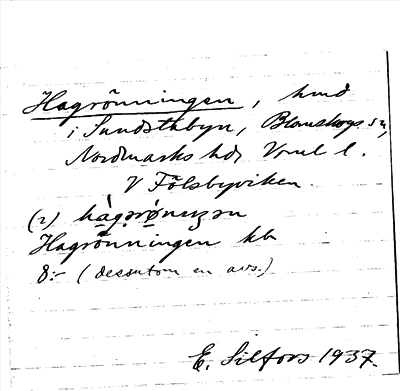 Hagrönningen, hmd
i Sundstabyn, Blomskogs sn,
Nordmarks hd, Vrml l.
V Fölsbyviken.
(2)
Hagrönningen kb
8:- (dessutom en avs.)
E. Silfors 1937.